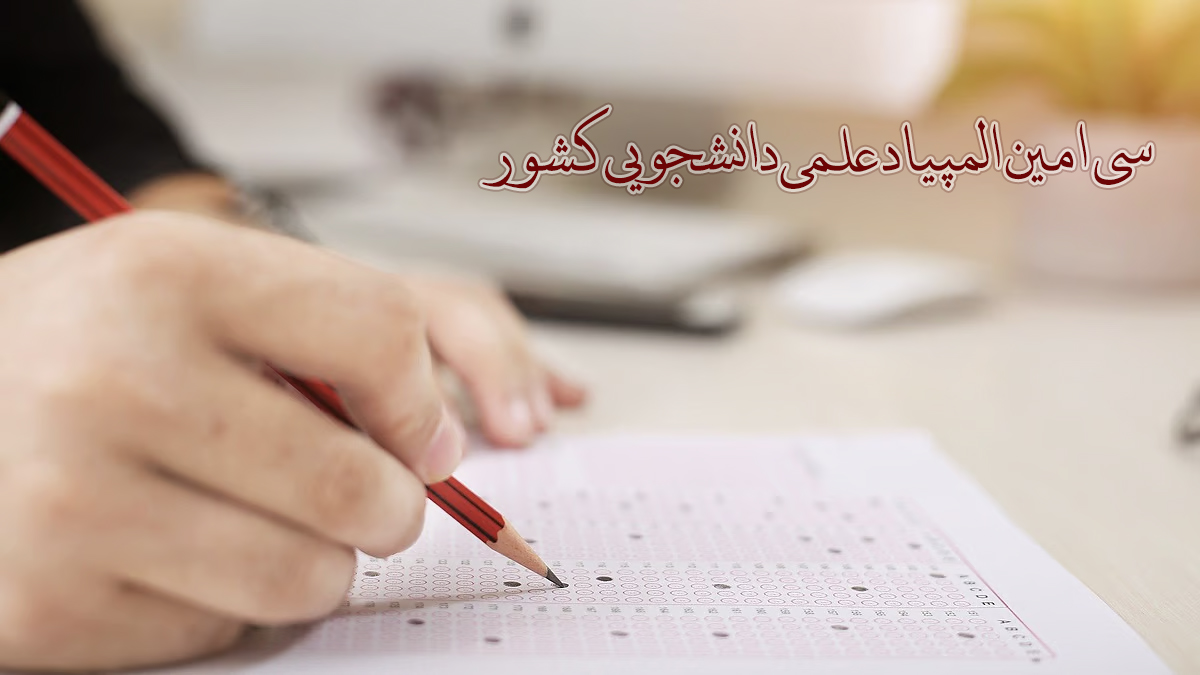 سی امین المپیاد علمی دانشجویی کشور
A B C D E
A B C D E